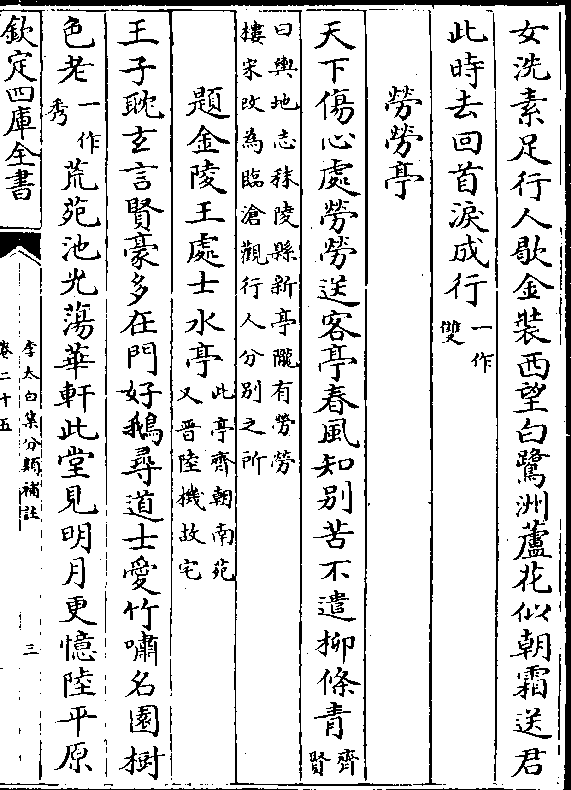 女洗素足行人歇金装西望白鷺洲蘆花似朝霜送君
此時去回首淚成行一作雙
勞勞亭
天下傷心處勞勞送客亭春風知别苦不遣柳條青齊賢
曰輿地志秣陵縣新亭隴有勞勞
樓宋改為臨滄觀行人分别之所
題金陵王處士水亭此亭齊朝南苑又晉陸機故宅
王子耽玄言賢豪多在門好鵝尋道士愛竹嘯名園樹
色老一作秀荒苑池光蕩華軒此堂見明月更憶陸平原
欽定四庫全書
李太白集分類補註
卷二十五
三